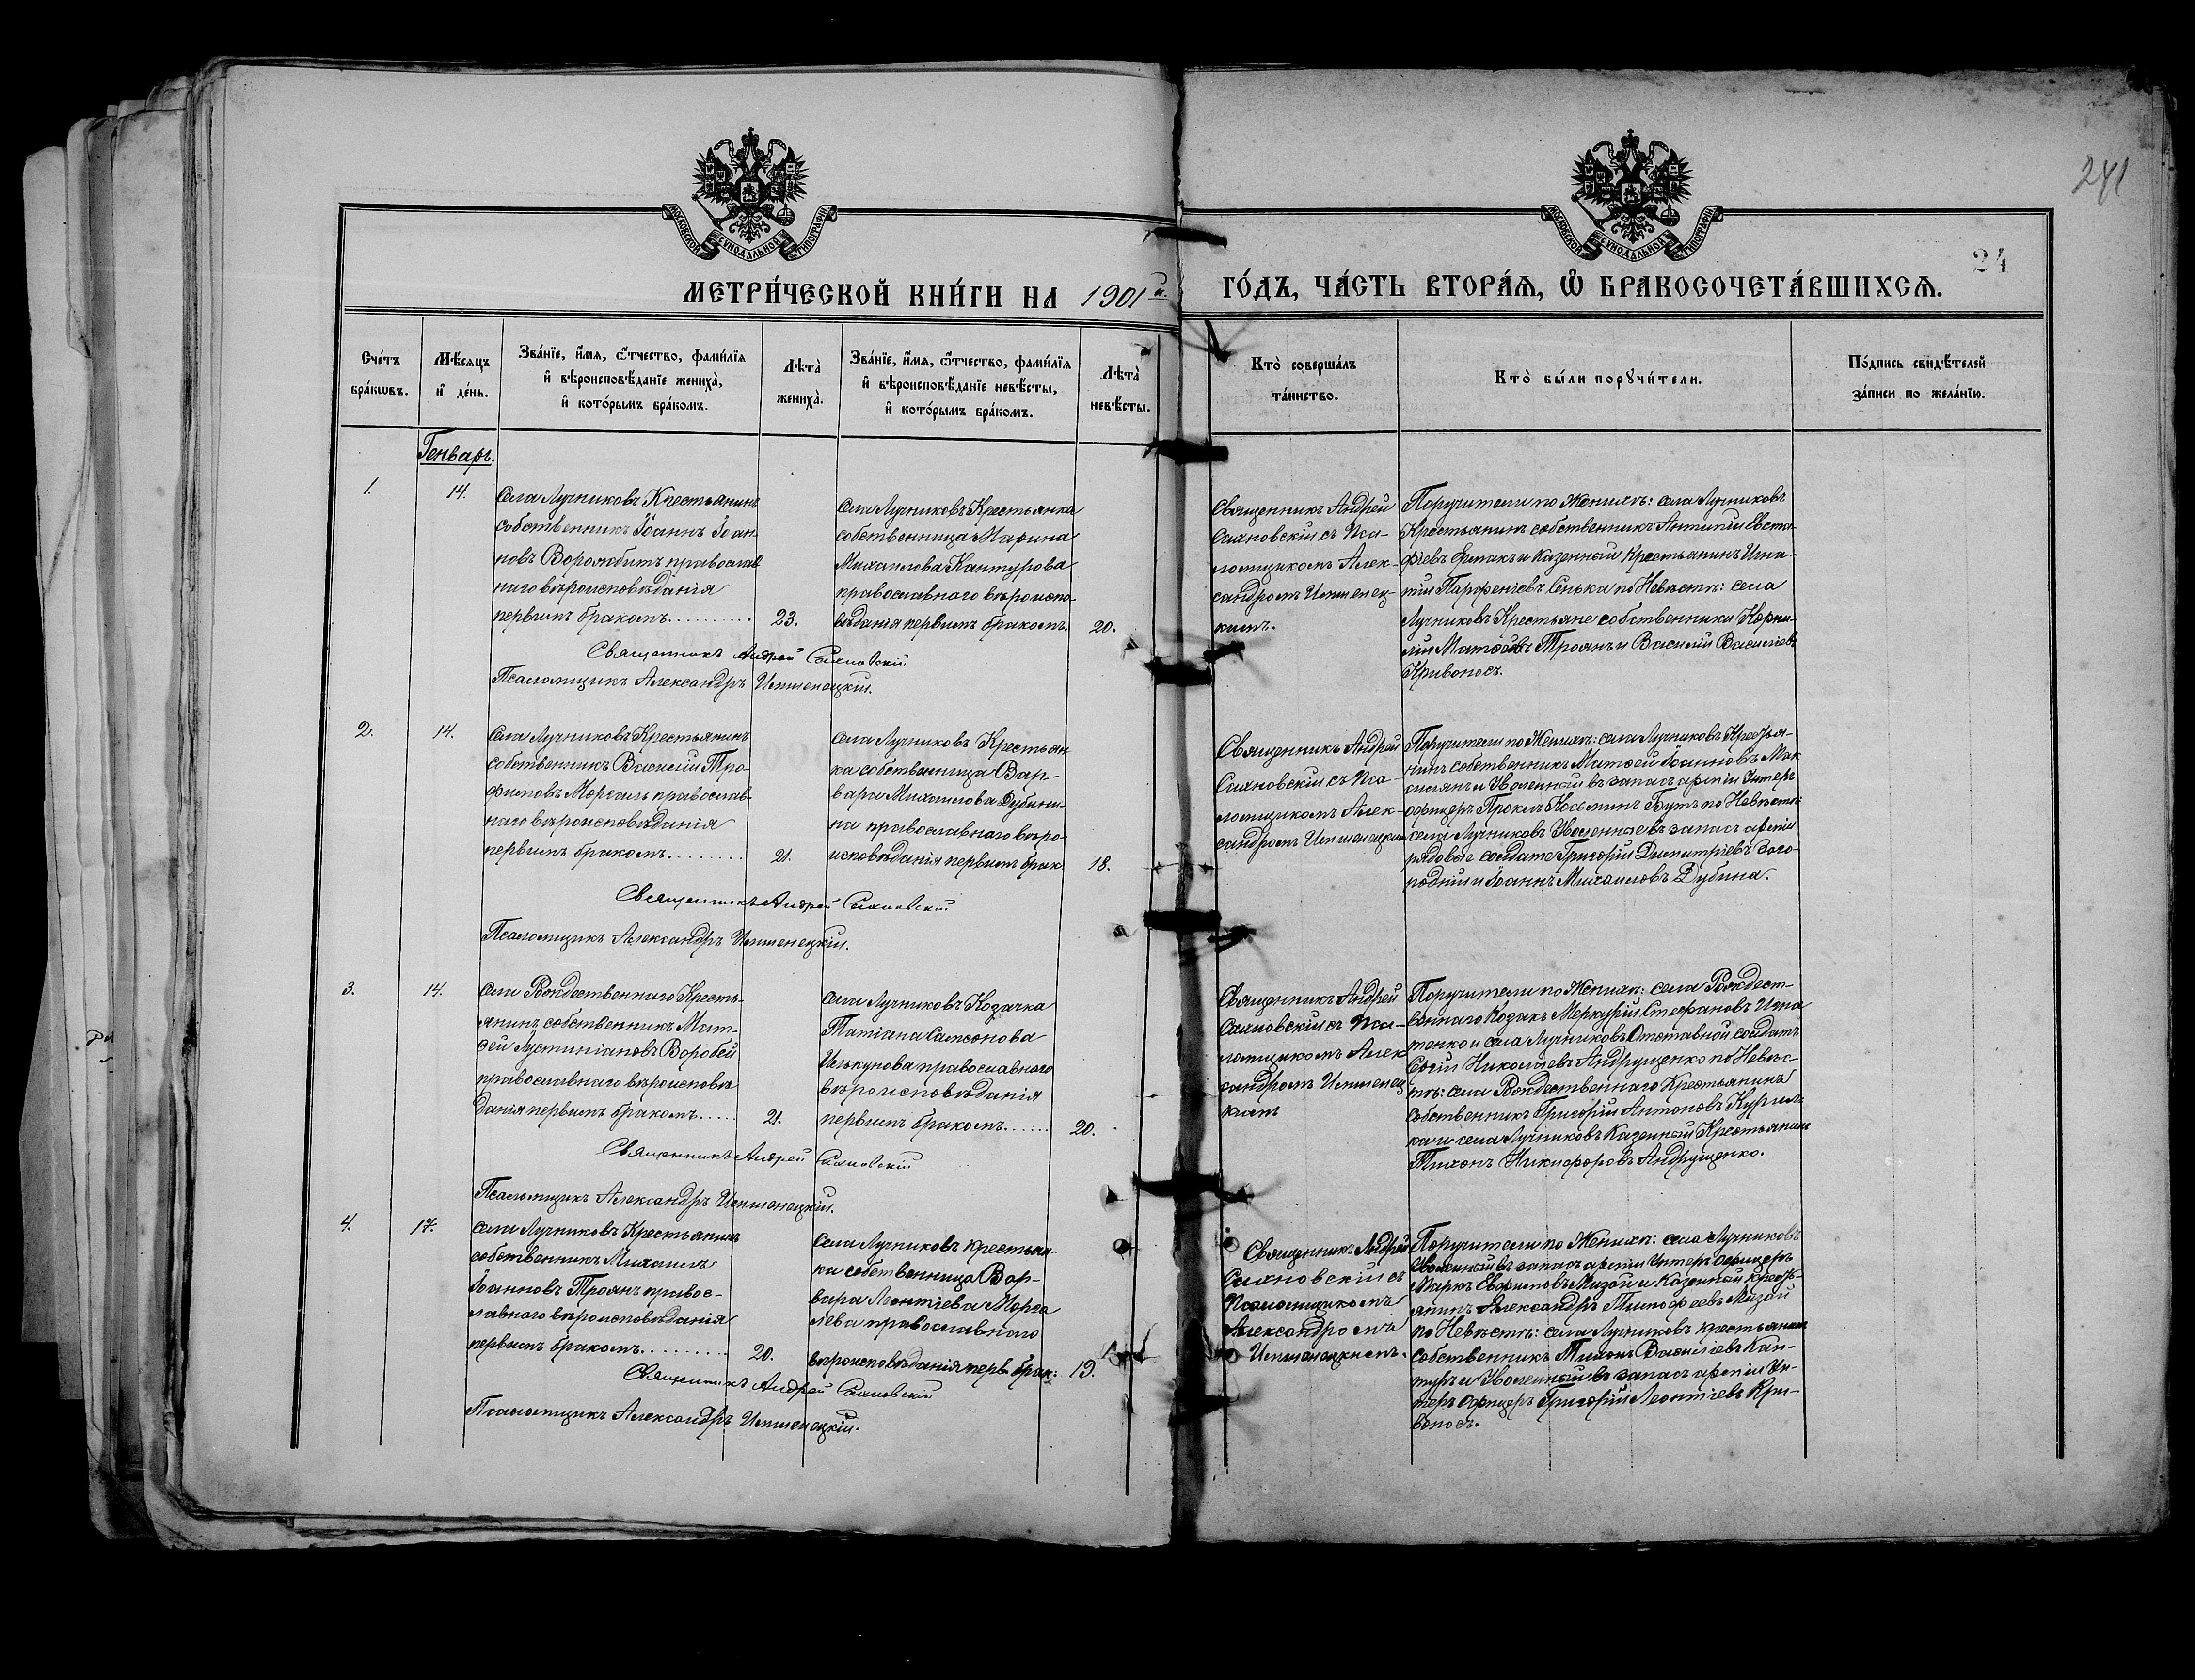 241
24
МОСКОВСКОЙ СѴНОДАЛЬНОЙ ТИПОГРАФІИ
МОСКОВСКОЙ СѴНОДАЛЬНОЙ ТИПОГРАФІИ
МЕТРИ́ЧЕСКОЙ КНИ́ГИ НА 1901й.
ГО́ДЪ, ЧА́СТЬ ВТОРА́Я, Ѡ҆ БРАКОСОЧЕТА́ВШИХСЯ.
Сче́тъ
бра́кωвъ.
Мѣ́сяцъ
и҆ де́нь.
Зва́нїе, и҆́мя, ѻ҆́тчество, фами́лїя
и҆ вѣроисповѣ́данїе жениха̀,
и҆ кото́рымъ бра́комъ.
Лѣта̀
жениха̀.
Зва́нїе, и҆́мя, ѻ҆́тчество, фами́лїя
и҆ вѣроисповѣ́данїе невѣ́сты,
и҆ кото́рымъ бра́комъ.
Лѣта̀
невѣ́сты.
Кто̀ соверша́лъ
та́инство.
Кто̀ бы́ли порꙋчи́тели.
По́дпись свидѣ́телей
за́писи по жела́нїю.
Генварь.
1.
14.
Села Лучниковъ Крестьянинъ
собственникъ Іоаннъ Іоан-
новъ Ворожбитъ православ
наго вѣроисповѣданія
первымъ бракомъ.
23.
Села Лучниковъ Крестьянка
собственница Марина
Михаилова Кантурова
православнаго вѣроиспо-
вѣданія первымъ бракомъ.
20.
Священникъ Андрей
съ Пса-
ломщикомъ Алек-
сандромъ
кимъ.
Поручители по Женихѣ: села Лучниковъ
Крестьянинъ собственникъ Антипій Евста-
фіевъ Ермакъ и Казенный Крестьянинъ Игна-
тій Парфеніевъ Сенька по Невѣстѣ: села
Лучниковъ Крестьяне собственники Корни-
лій Матѳіевъ Троянъ и Василій Василіевъ
Кривоносъ.
Священникъ Андрей
Псаломщикъ Александръ
2.
14.
Села Лучниковъ Крестьянинъ
собственникъ Василій Тро-
фимовъ Моргаль православ-
наго вѣроисповѣданія
первымъ бракомъ.
21.
Села Лучниковъ Крестьян
ка собственница Вар-
вара Михаилова Дубини-
на православнаго вѣро-
исповѣданія первымъ брак
18.
Священникъ Андрей
съ Пса-
ломщикомъ Алек-
сандромъ
Поручители по Женихѣ: села Лучниковъ Крестья-
нинъ собственникъ Матѳей Іоанновъ Мак
и Уволенный въ запасъ арміи Унтеръ
офицеръ Проклъ Косьминъ Бутъ по Невѣстѣ
села Лучниковъ Уволенные въ запасъ арміи
рядовые солдаты Григорій Димитріевъ Заго-
родній и Іоаннъ Михаиловъ Дубина.
Священникъ Андрей
Псаломщикъ Александръ
3.
14.
Села Рождественнаго Кресть-
янинъ собственникъ Мат-
ѳей Іустиніановъ Воробей
православнаго вѣроисповѣ
данія первымъ бракомъ.
21.
Села Лучниковъ Козачка
Татіана Самсонова
православнаго
вѣроисповѣданія
первымъ бракомъ.
20.
Священникъ Андрей
съ Пса-
ломщикомъ Алек
сандромъ
кимъ
Поручители по Женихѣ: села Рождест-
веннаго Козакъ Меркурій Стефановъ Игна
тенко и села Лучниковъ Отставной солдатъ
Николаевъ Андрущенко по Невѣс-
тѣ: села Рождественнаго Крестьянинъ
собственникъ Григорій Антоновъ Курил-
ка и села Лучниковъ Казенный Крестьянинъ
Тихонъ Никифоровъ Андрущенко.
Священникъ Андрей
Псаломщикъ Александръ
4.
17.
Села Лучниковъ Крестьянинъ
собственникъ Михаилъ
Іоанновъ Троянъ правос-
лавнаго вѣроисповѣданія
первымъ бракомъ.
20.
Села Лучниковъ крестьян-
ка собственница Вар-
вара Леонтіева Морга
лева православнаго
вѣроисповѣданія перв. брак:
19.
Священникъ Андрей
съ
Псаломщикомъ
Александромъ
Поручители по Женихѣ: села Лучниковъ
Уволенный въ запасъ арміи Унтеръ офицеръ
Маркъ Евфимовъ Мизій и Казенный кресть-
янинъ Александръ Тимофеевъ Мизій
по Невѣстѣ: села Лучниковъ крестьянинъ
собственникъ Тихонъ Василіевъ Кан-
туръ и Уволенный въ запасъ арміи Ун-
теръ Офицеръ Григорій Леонтіевъ Кри-
воносъ.
Священникъ Андрей
Псаломщикъ Александръ